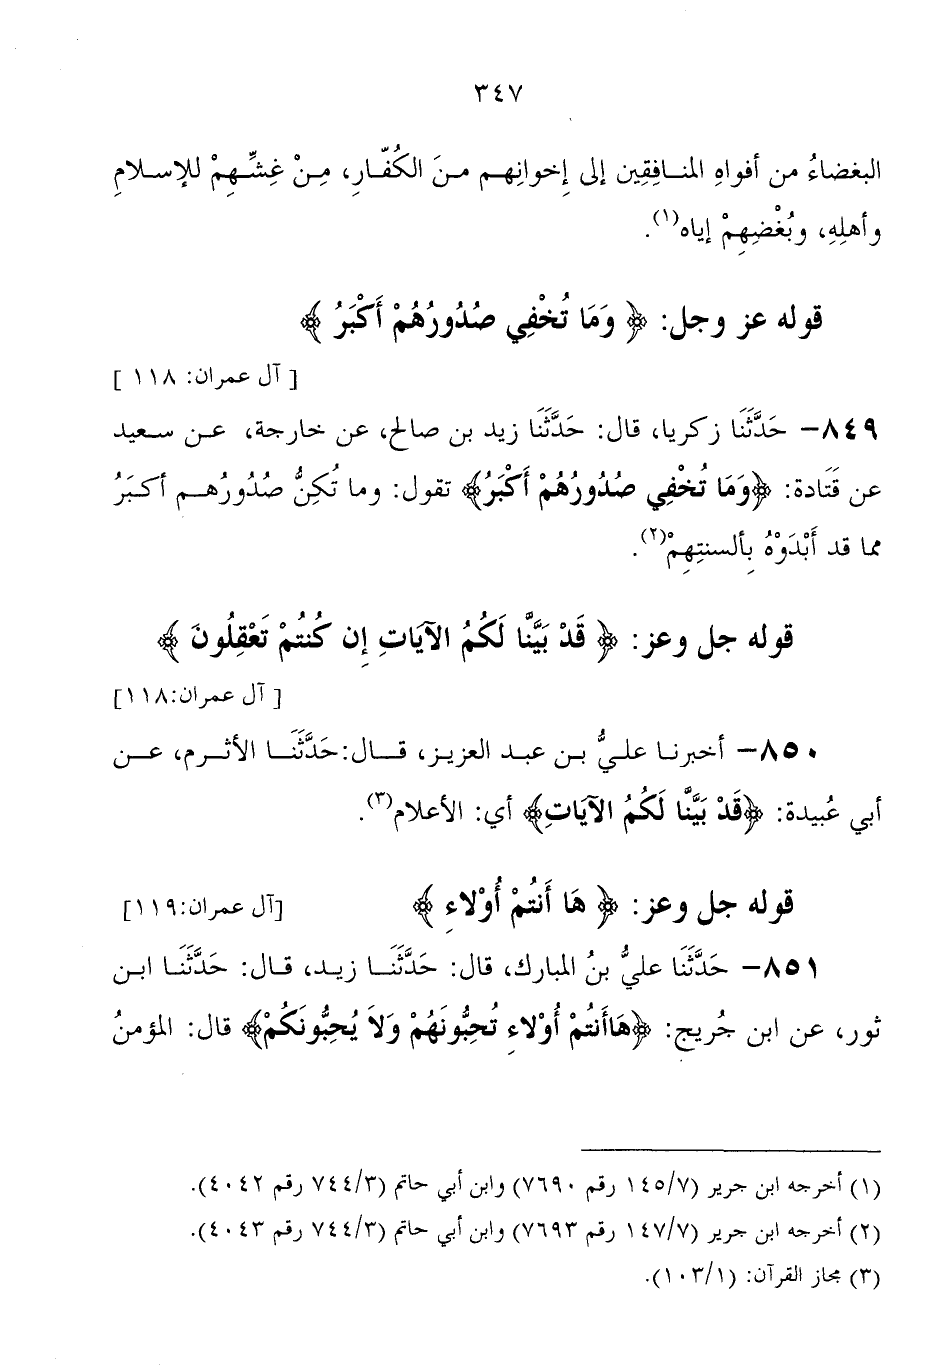 ٣٤٧
البغضاءُ من أفواهِ المنافِقِين إلى إِخوانِهم منَ الكُفّارِ، مِنْ غِشِّهِمْ للإسلامِ
وأهلِهِ، وبُغْضِهِمْ إياه(١).
قوله عز وجل: ﴿ وَمَا تُخْفِي صُدُورُهُمْ أَكْبَرُ ﴾
[ آل عمران: ١١٨ ]
٨٤٩- حَدَّثَنَا زكريا، قال: حَدَّثَنَا زيد بن صالح، عن خارجة، عن سعيد
عن قَتَادة: ﴿وَمَا تُخْفِي صُدُورُهُمْ أَكْبَرُ﴾ تقول: وما تُكِنُّ صُدُورُهم أكبَرُ
مما قد أَبْدَوْهُ بِألسنتِهِمْ(٢).
قوله جل وعز: ﴿ قَدْ بَيَّنَّا لَكُمُ الآيَاتِ إِن كُنتُمْ تَعْقِلُونَ ﴾
[ آل عمران:١١٨]
٨٥٠- أخبرنا عليُّ بن عبد العزيز، قال:حَدَّثَنَا الأثرم، عن
أبي عُبيدة: ﴿قَدْ بَيَّنَّا لَكُمُ الآيَاتِ﴾ أي: الأعلام(٣).
قوله جل وعز: ﴿ هَا أَنتُمْ أُوْلاءِ ﴾ [آل عمران:١١٩]
٨٥١- حَدَّثَنَا عليُّ بنُ المبارك، قال: حَدَّثَنَا زيد، قال: حَدَّثَنَا ابن
ثور، عن ابن جُريج: ﴿هَاأَنتُمْ أُوْلاءِ تُحِبُّونَهُمْ وَلاَ يُحِبُّونَكُمْ﴾ قال: المؤمنُ
(١) أخرجه ابن جرير (١٤٥/٧ رقم ٧٦٩٠) وابن أبي حاتم (٧٤٤/٣ رقم ٤٠٤٢).
(٢) أخرجه ابن جرير (١٤٧/٧ رقم ٧٦٩٣) وابن أبي حاتم (٧٤٤/٣ رقم ٤٠٤٣).
(٣) مجاز القرآن: (١٠٣/١).